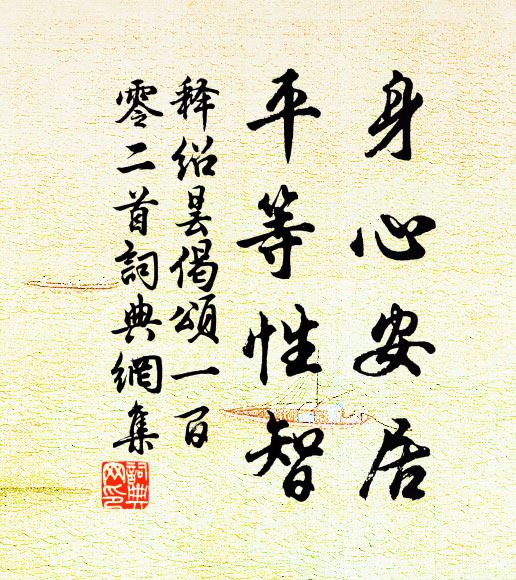 身心安居
平等性智
释绍昙偈颂一百
零二首詞典網集
詞典网印